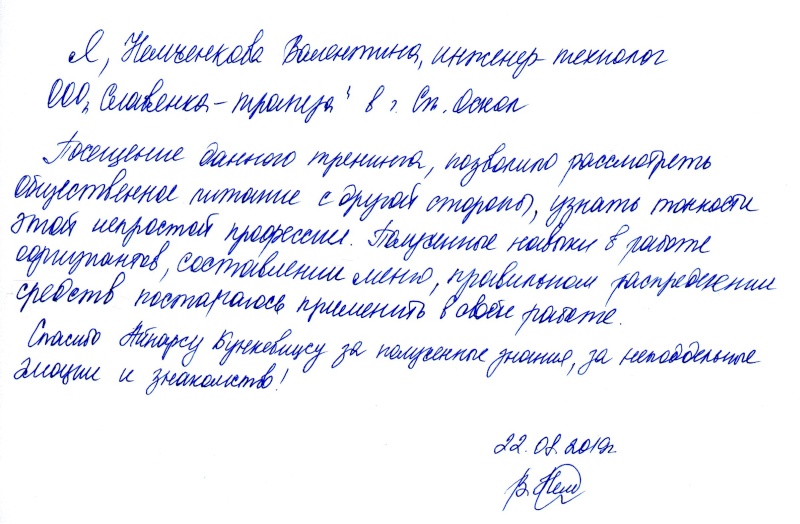 Я, Немченкова Валентина, инженер-технолог
ООО „Славянка-трапеза" в г. Ст. Оскол
Посещение данного тренинга, позволило рассмотреть
общественное питание с другой стороны, узнать тонкости
этой непростой профессии. Полученные навыки в работе
официантов, составлении меню, правильном распределении
средств постараюсь применить в своей работе.
Спасибо Айнарсу Бункевицсу за полученные знания, за неподдельные
эмоции и знакомство!
22.08.2019г.